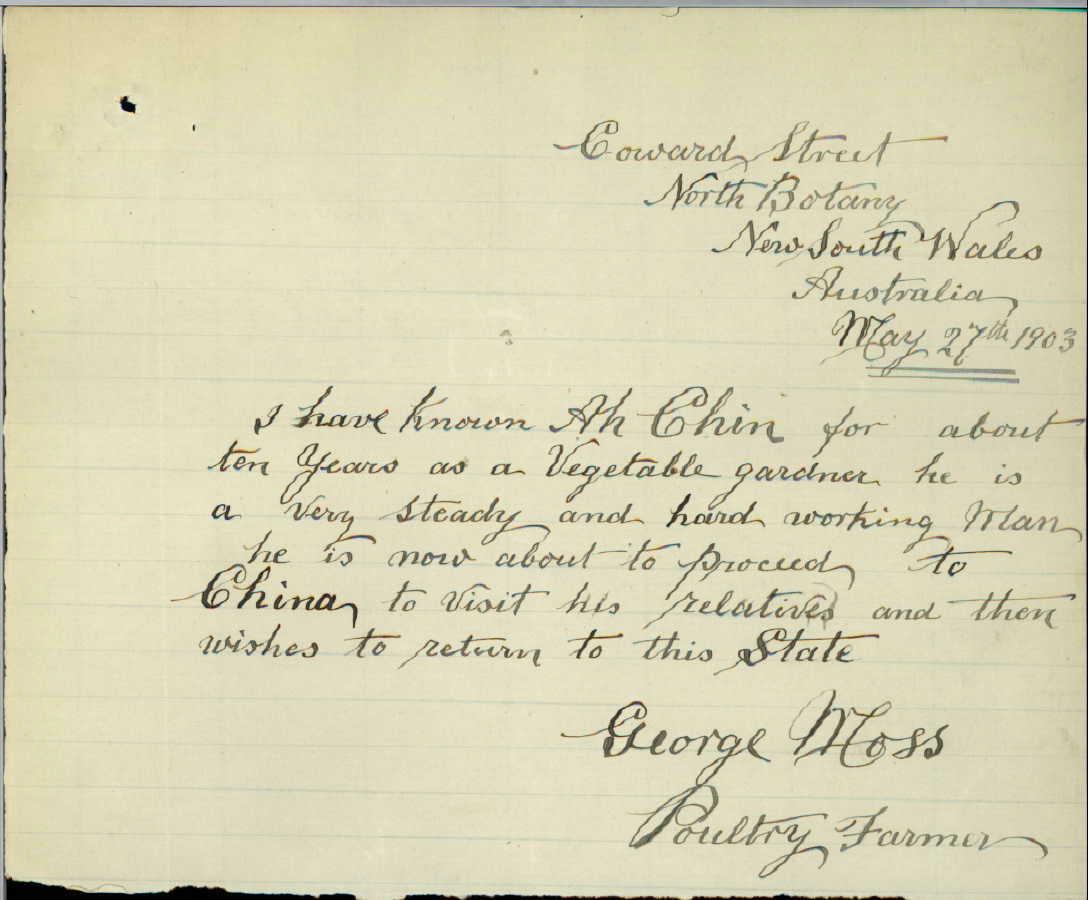 Coward Street
North Botany
New South Wales
Australia
May 27th 1903
I have known Ah Chin for about
ten Years as a Vegetable gardner he is
a very steady and hard working Man
he is now about to proceed to
China, to visit his relatives and then
wishes to return to this State
George Moss
Poultry Farmer